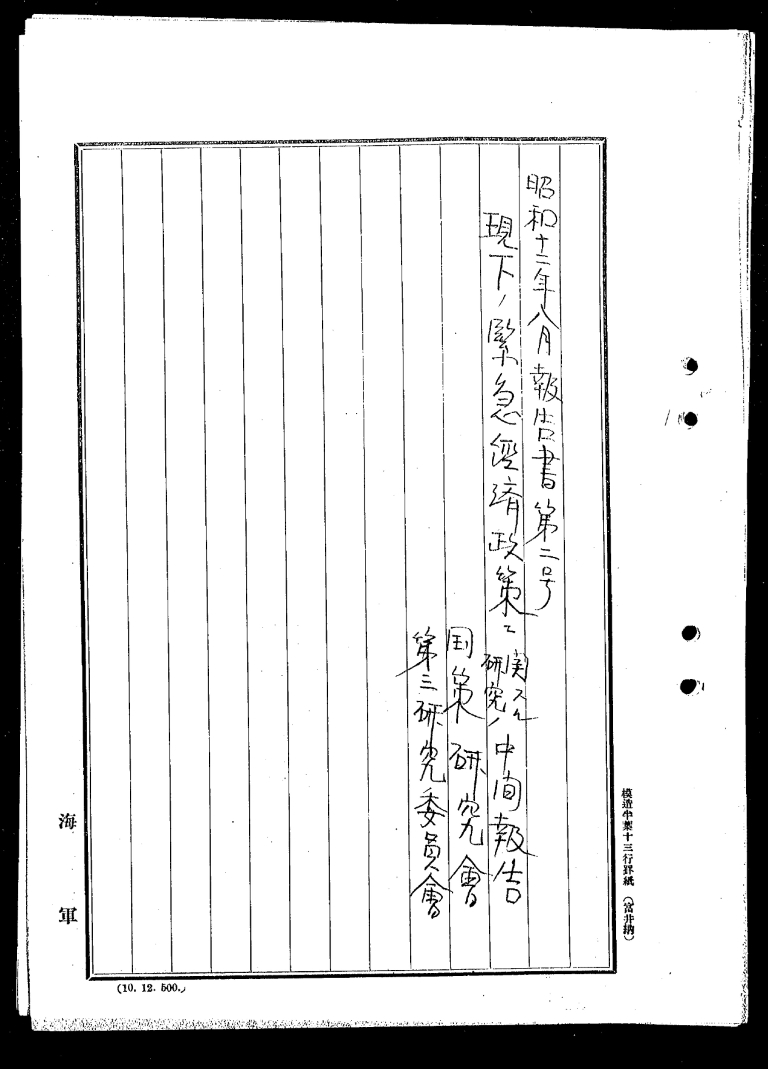 昭和十二年八月報告書第二号
現下ノ緊急経済政策ニ
関スル
研究ノ
中间報告
国策研究會
第三研究委員會
模造半葉十三行罫紙（富井納）
海軍
(10. 12. 500.)